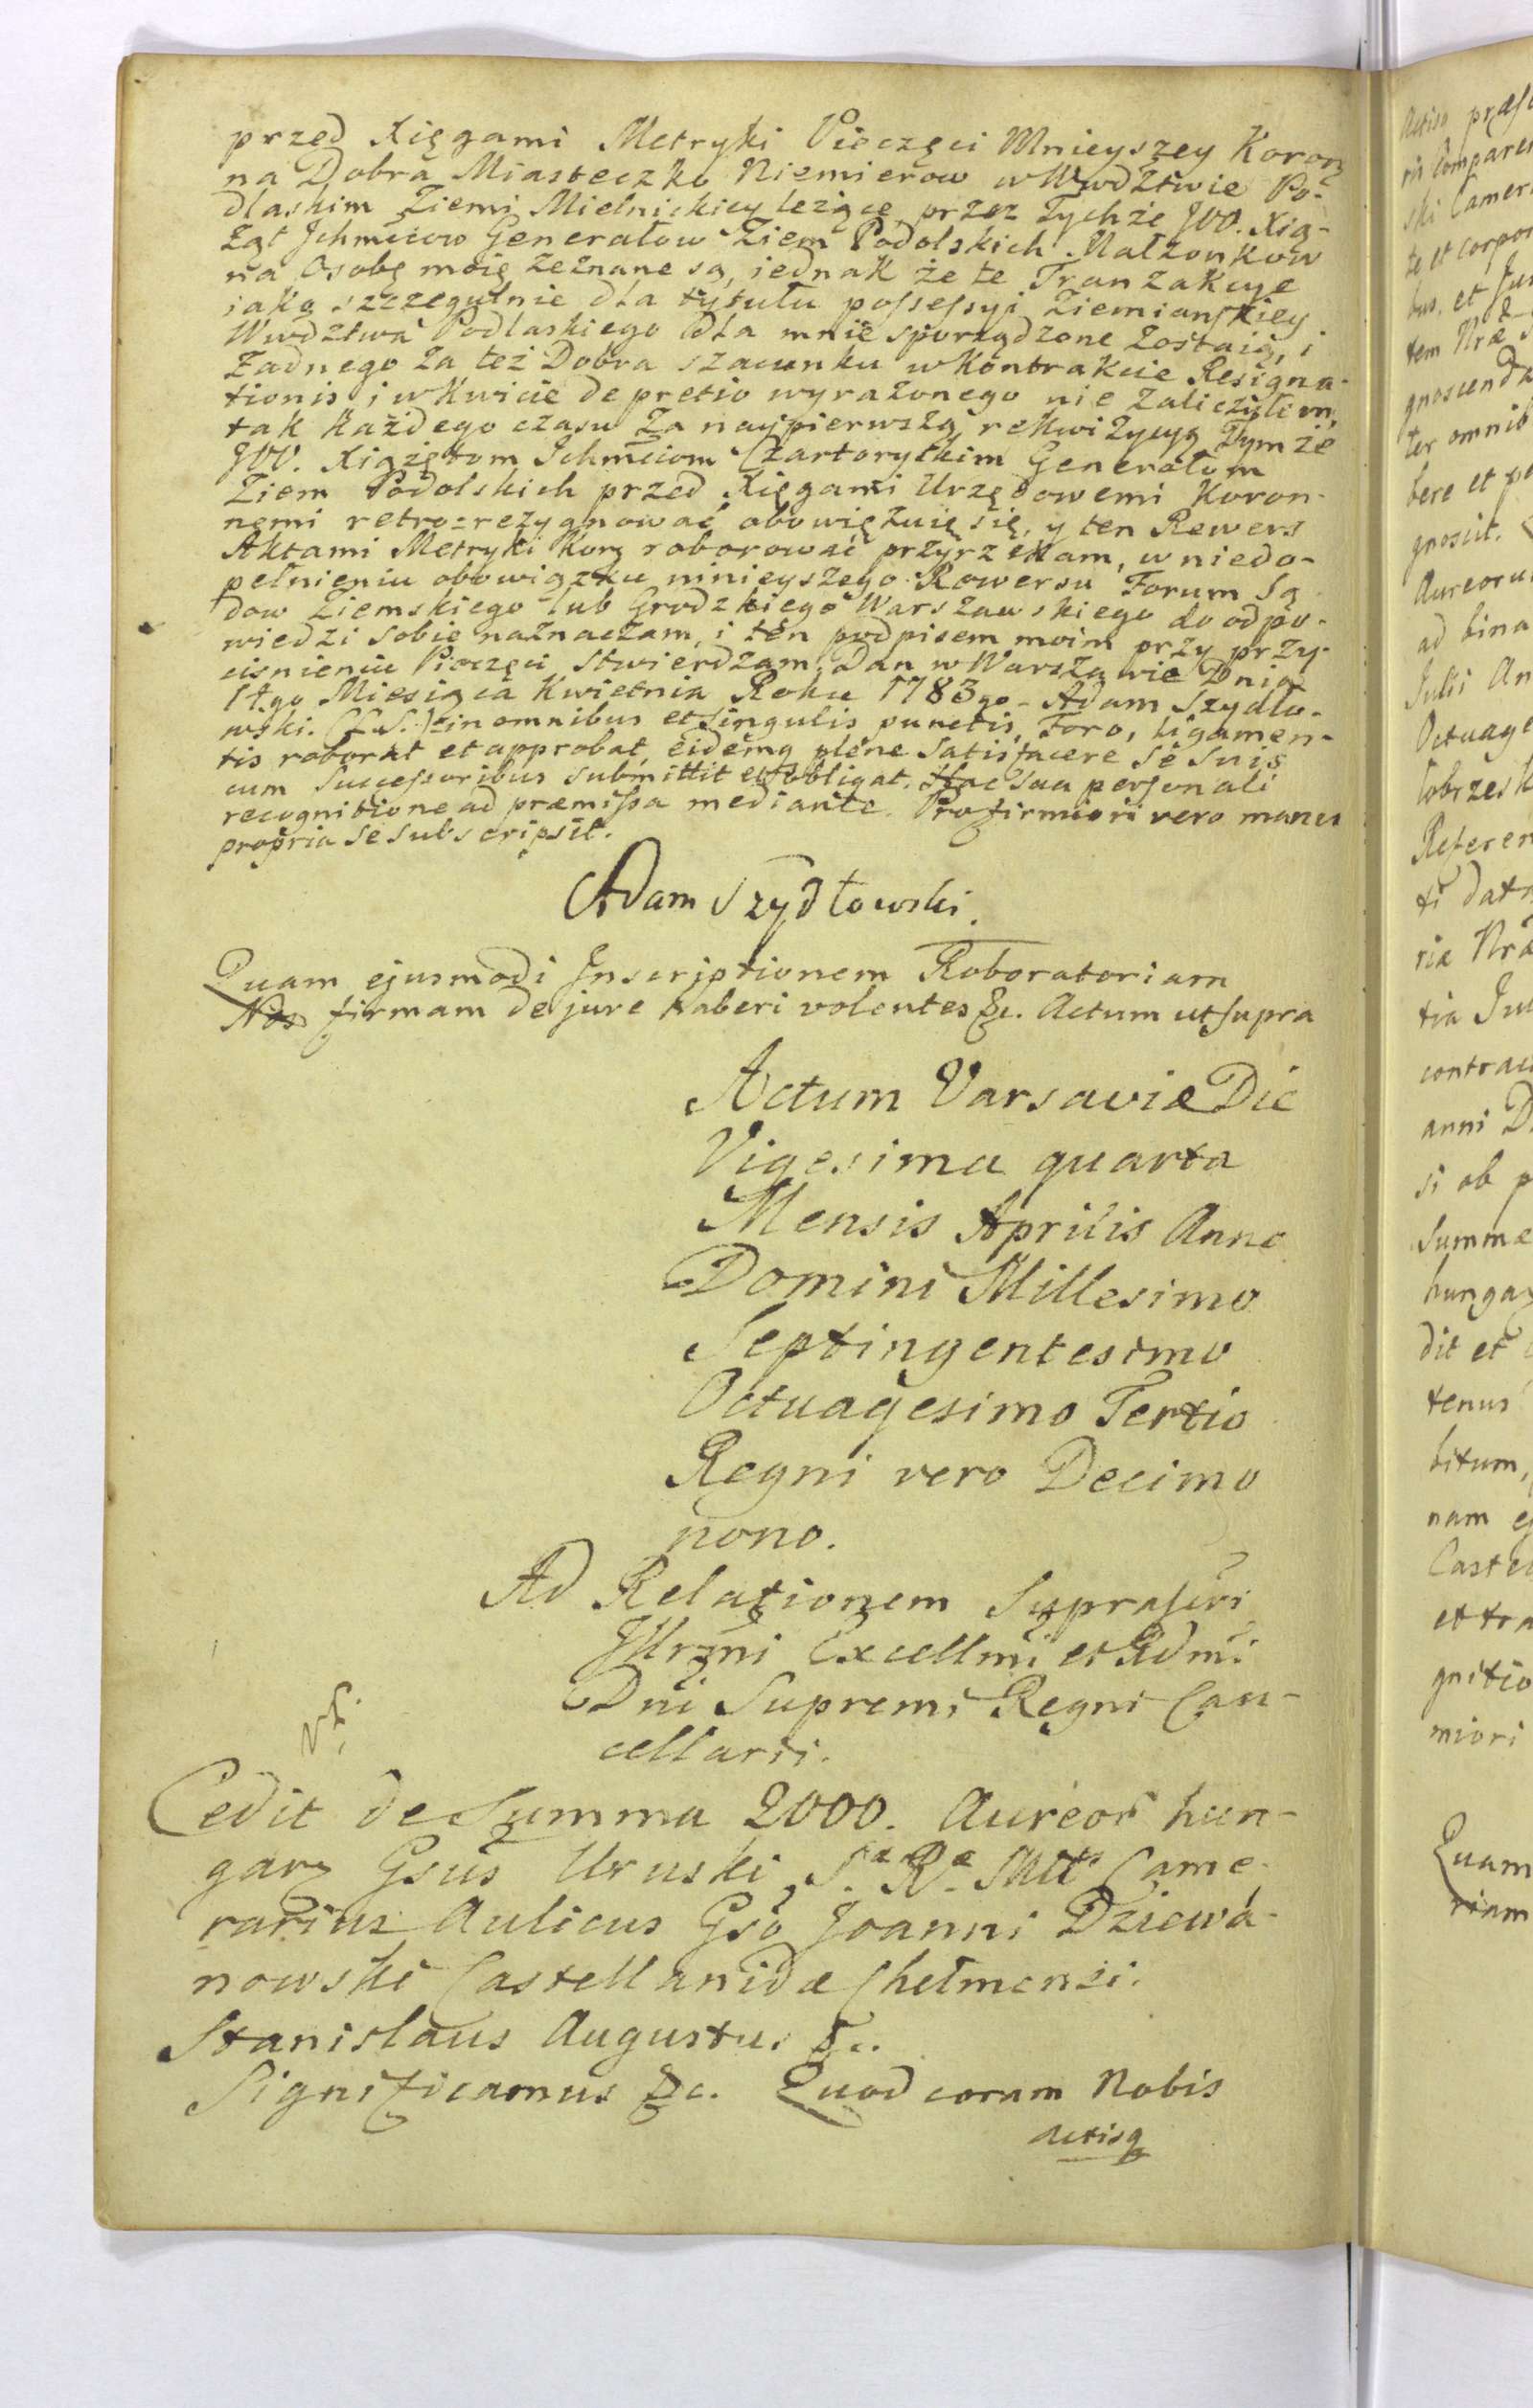 przed Xięgami Metryki Pieczęci Mnieyszey Koron
na Dobra Miasteczko Niemierow w Wwdztwie Po-
dlaskim Ziemi Mielnickiey leżące, przez Tychże JOO. Xią-
żąt Jchmciow Generałow Ziem Podolskich Małżonkow
na Osobę moię zeznane są, iednak że te Tranzakcye
iako szczegulnie dla tytułu possessyi Ziemianskiey
Wwdztwa Podlaskiego dla mnie sporządzone zostaią, i
żadnego za też Dobra szacunku w Kontrakcie Resigna-
tionis i w Kwicie de pretio wyrażonego nie zaliczyłem,
tak każdego czasu za naypierwszą rekwizycyą Tymże
JOO. Xiążętom Jchmciom Czartoryłkim Generałom
Ziem Podolskich przed Xięgami Urzędowemi Koron-
nemi retro=rezygnować obowięzuię się, y ten Rewers
Aktami Metryki Kor. roborować przyrzekam, w niedo-
pełnieniu obowiązku ninieyszego Rewersu Forum Są-
dow Ziemskiego lub Grodzkiego Warszawskiego do odpo-
wiedzi sobie naznaczam, i ten podpisem moim przy przy-
cisnieniu Pieczęci stwierdzam. Dan w Warszawie Dnia
14.go Miesiąca Kwietnia Roku 1783go - Adam Szydło-
wski. (L.S.) = in omnibus et singulis punctis, Foro, ligamen-
tis roborat et approbat, eidemq plene satisfacere se suis
cum Successoribus submittit et obligat. Hac sua personali
recognitione ad præmissa mediante. Pro firmiori vero manu
propria se subscripsit.
Adam Szydłowski.
Quam ejusmodi Inscriptionem Roboratoriam
Nos firmam de jure haberi volentes &c. Actum ut supra
Actum Varsaviæ Die
Vigesima quarta
Mensis Aprilis Anno
Domini Millesimo
Septingentesimo
Octuagesimo Tertio
Regni vero Decimo
nono.
Ad Relationem Suprascri
Jllrmi Excellmi et Rdmi
Dni Supremi Regni Can-
cellarii.
Cedit de Summa 2000. Aureor hun-
gar Gsus Uruski S.æ R.æ Mtts Came-
rarius Aulicus Gso Joanni Dziewa-
nowski Castellanidæ Chełmensi.
Stanislaus Augustus &c.
Significamus &c. Quod coram Nobis
actisq